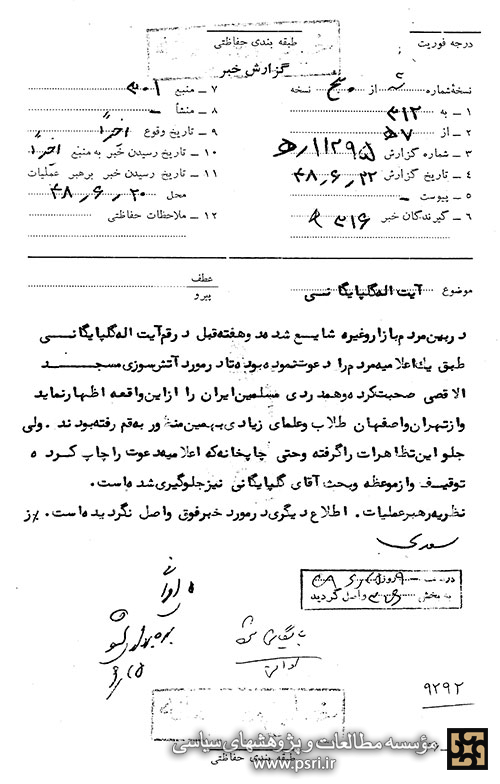 درجه فوریت
طبقه بندی حفاظتی
گزارش خبر
نسخه شماره از نسخه
۱ - به ۳۱۲
۲ - از ۵۷
۳ - شماره گزارش
۴ - تاریخ گزارش ۴۸٫۶٫۲۲
۵ - پیوست
۶ - گیرندگان خبر ۳۱۶
۷ - منبع
۸ - منشأ
۹ - تاریخ وقوع اخیراً
۱۰ - تاریخ رسیدن خبر به منبع اخیراً
۱۱ - تاریخ رسیدن خبر برهبر عملیات
محل ۴۸٫۶٫۲۰
۱۲ - ملاحظات حفاظتی
موضوع آیت اله گلپایگانی
عطف
پیرو
در بین مردم بازار و غیره شایع شده دو هفته قبل در قم آیت اله گلپایگانی
طبق یک اعلامیه مردم را دعوت نموده بوده تا در مورد آتش سوزی مسجد
الاقصی صحبت کرده و همدردی مسلمین ایران را از این واقعه اظهار نماید
و از تهران و اصفهان طلاب و علمای زیادی بهمین منظور به قم رفته بودند . ولی
جلو این تظاهرات را گرفته و حتی چاپخانه که اعلامیه دعوت را چاپ کرده
توقیف و از موعظه و بحث آقای گلپایگانی نیز جلوگیری شده است.
نظریه رهبر عملیات . اطلاع دیگری در مورد خبر فوق واصل نگردیده است.
در روز
به بخش واصل گردید
بایگانی شود
۹۲۹۲
مؤسسه مطالعات و پژوهشهای سیاسی
www.psri.ir
طبقه بندی حفاظتی